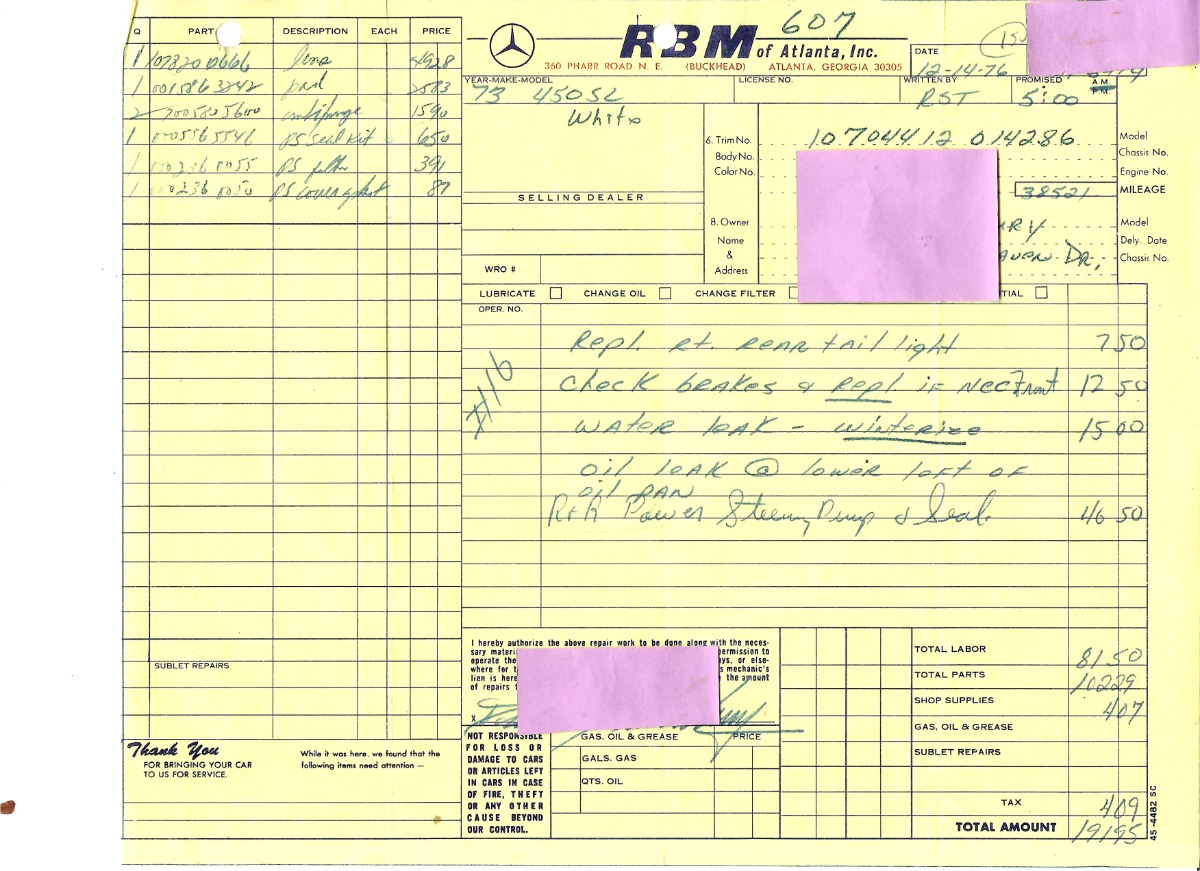 607
RBM of Atlanta, Inc.
360 PHARR ROAD N. E. (BUCKHEAD) ATLANTA, GEORGIA 30305
DATE 12-14-76
YEAR-MAKE-MODEL LICENSE NO. WRITTEN BY PROMISED A.M. P.M.
73 450SL RST 5:00
White
Q PART DESCRIPTION EACH PRICE
1 1078200666 lens 4928
1 0015863242 pad 2583
2 1590
1 0005865546 PS Seal Kit 650
1 PS 391
1 PS cover gasket 87
6. Trim No. 107044 12 014286 Model
Body No. Chassis No.
Color No. Engine No.
38521 MILEAGE
SELLING DEALER
8. Owner Model
Name Dely. Date
& Chassis No.
Address DR,
WRO #
LUBRICATE CHANGE OIL CHANGE FILTER TIAL
OPER. NO.
Repl. rt. rear tail light 7 50
#116
Check brakes & Repl. if nec Front 12 50
Water leak - winterize 15 00
oil leak @ lower left of
oil pan
R+R Power Steering Pump & Seal. 46 50
I hereby authorize the above repair work to be done along with the neces-
sary materi ermission to
operate the ays, or else-
where for t s mechanic's
lien is here the amount
of repairs
X
SUBLET REPAIRS
Thank You
FOR BRINGING YOUR CAR
TO US FOR SERVICE.
While it was here, we found that the
following items need attention —
NOT RESPONSIBLE
FOR LOSS OR
DAMAGE TO CARS
OR ARTICLES LEFT
IN CARS IN CASE
OF FIRE, THEFT
OR ANY OTHER
CAUSE BEYOND
OUR CONTROL.
GAS, OIL & GREASE PRICE
GALS. GAS
QTS. OIL
TOTAL LABOR 8150
TOTAL PARTS 10229
SHOP SUPPLIES 407
GAS, OIL & GREASE
SUBLET REPAIRS
TAX 409
TOTAL AMOUNT 19195
45-4482 SC